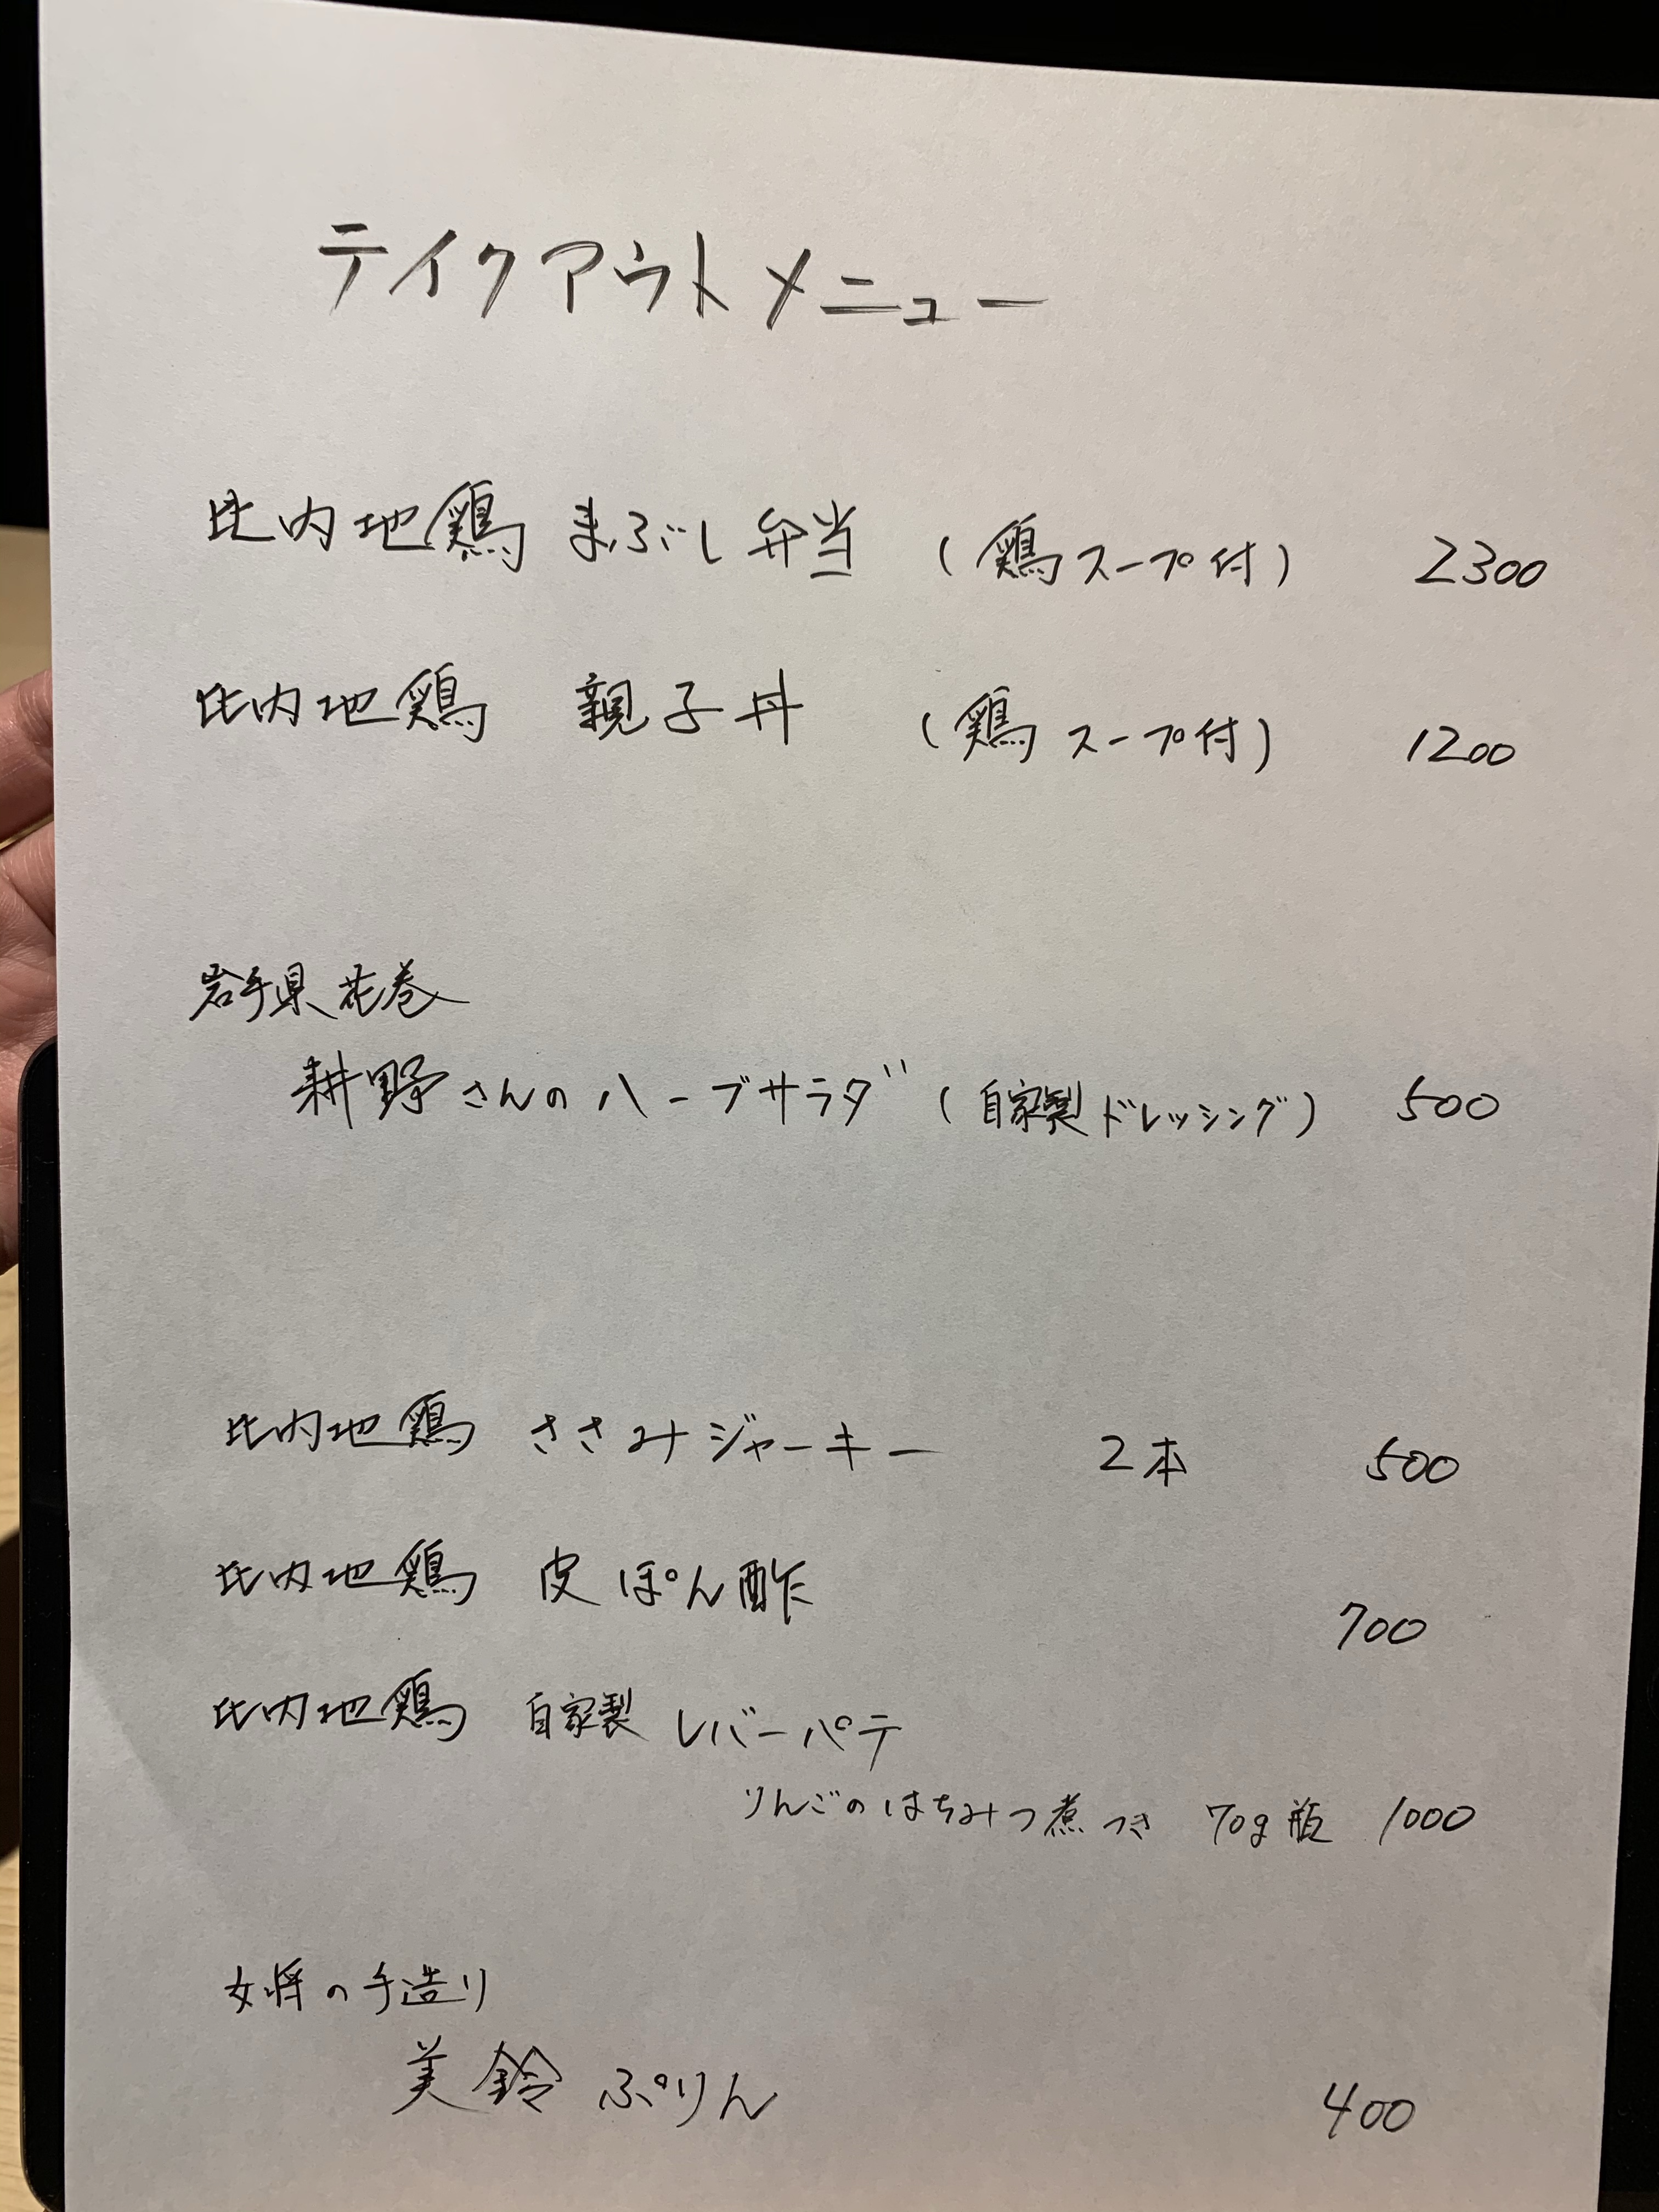 テイクアウトメニュー
比内地鶏 まぶし弁当 (鶏スープ付) 2300
比内地鶏 親子丼 (鶏スープ付) 1200
岩手県花巻
耕野さんのハーブサラダ (自家製ドレッシング) 500
比内地鶏 ささみジャーキー 2本 500
比内地鶏 皮ぽん酢 700
比内地鶏 自家製 レバーパテ
りんごのはちみつ煮つき 70g瓶 1000
女将の手造り
美鈴ぷりん 400